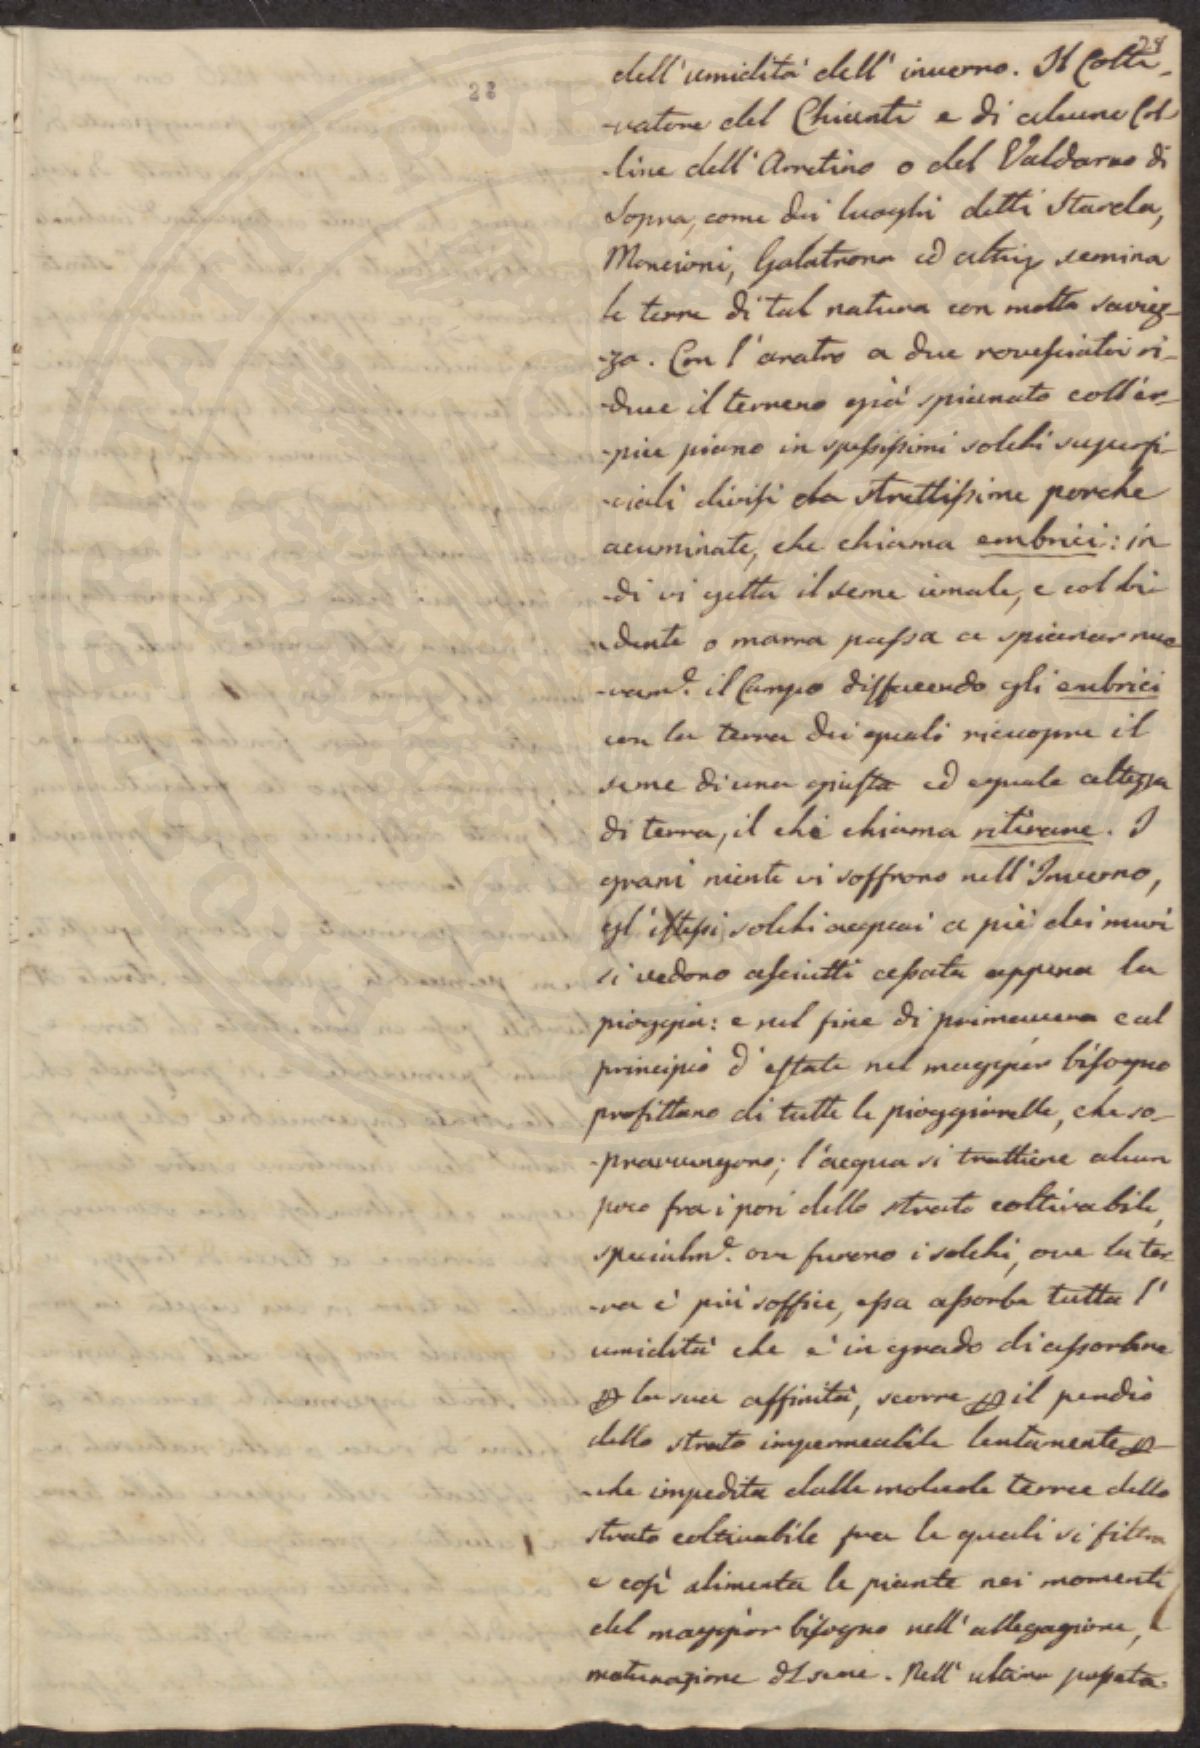 28
28
dell'umidità dell'inverno. Il Colti-
-vatore del Chianti e di alcune Col-
-line dell'Arretino o del Valdarno di
Sopra, come dei luoghi detti Starda,
Moncioni, Galatrona ed altri, semina
le terre di tal natura con molta saviez-
-za. Con l'aratro a due rovesciatoi ri-
-duce il terreno già spianato coll'er-
-pice piano in spessissimi solchi superfi-
-ciali divisi da strettissime porche
acuminate, che chiama embrici: in
-di vi getta il seme, e col bi-
-dente o marra passa a spianar nuo
-vam.e il Campo disfacendo gli embrici
con la terra dei quali ricuopre il
seme di una giusta ed eguale altezza
di terra, il che chiama ritirare. I
grani niente vi soffrono nell'Inverno,
gl'istessi solchi acquai a piè dei muri
si vedono asciutti cessata appena la
pioggia: e nel fine di primavera e al
principio d'estate nel maggior bisogno
profittano di tutte le pioggiarelle, che so-
-pravvengono; l'acqua si trattiene alcun
poco fra i pori dello strato coltivabile,
specialm.e ove furono i solchi, ove la ter
-ra è più soffice, essa assorbe tutta l'
umidità che è in grado di assorbire
p la sua affinità, scorre p il pendio
dello strato impermeabile lentamente p-
-che impedita dalle molecole terree dello
strato coltivabile fra le quali si filtra
e così alimenta le piante nei momenti
del maggior bisogno nell'allegagione,
maturazione del seme. Nell'ultima passata